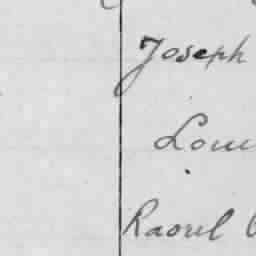 Joseph
Lou
Raoul